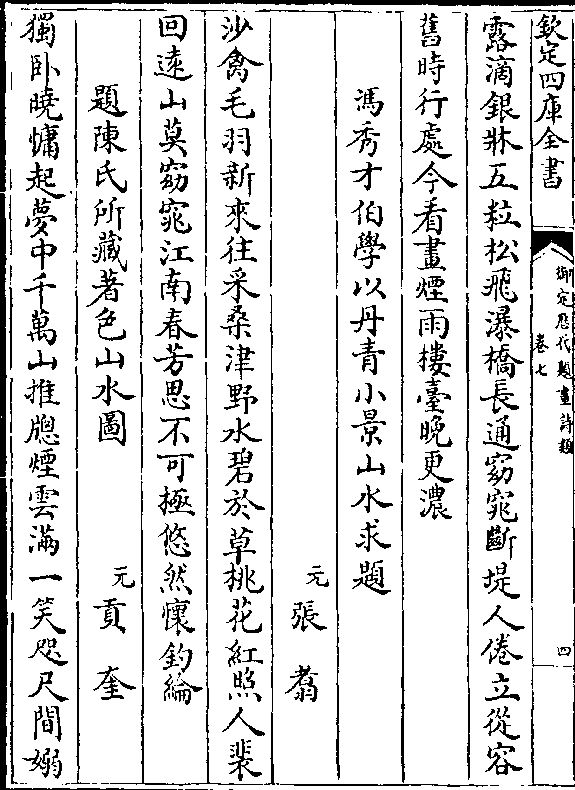 欽定四庫全書
御定歷代題畫詩類
卷七
四
露滴銀牀五粒松飛瀑橋長通窈窕斷堤人倦立從容
舊時行處今看畫煙雨樓臺晚更濃
馮秀才伯學以丹青小景山水求題
元張翥
沙禽毛羽新來往采桑津野水碧於草桃花紅照人裴
回遠山莫窈窕江南春芳思不可極悠然懷釣綸
題陳氏所藏著色山水圖
元貢奎
獨卧曉慵起夢中千萬山推牕煙雲滿一笑咫尺間嫋